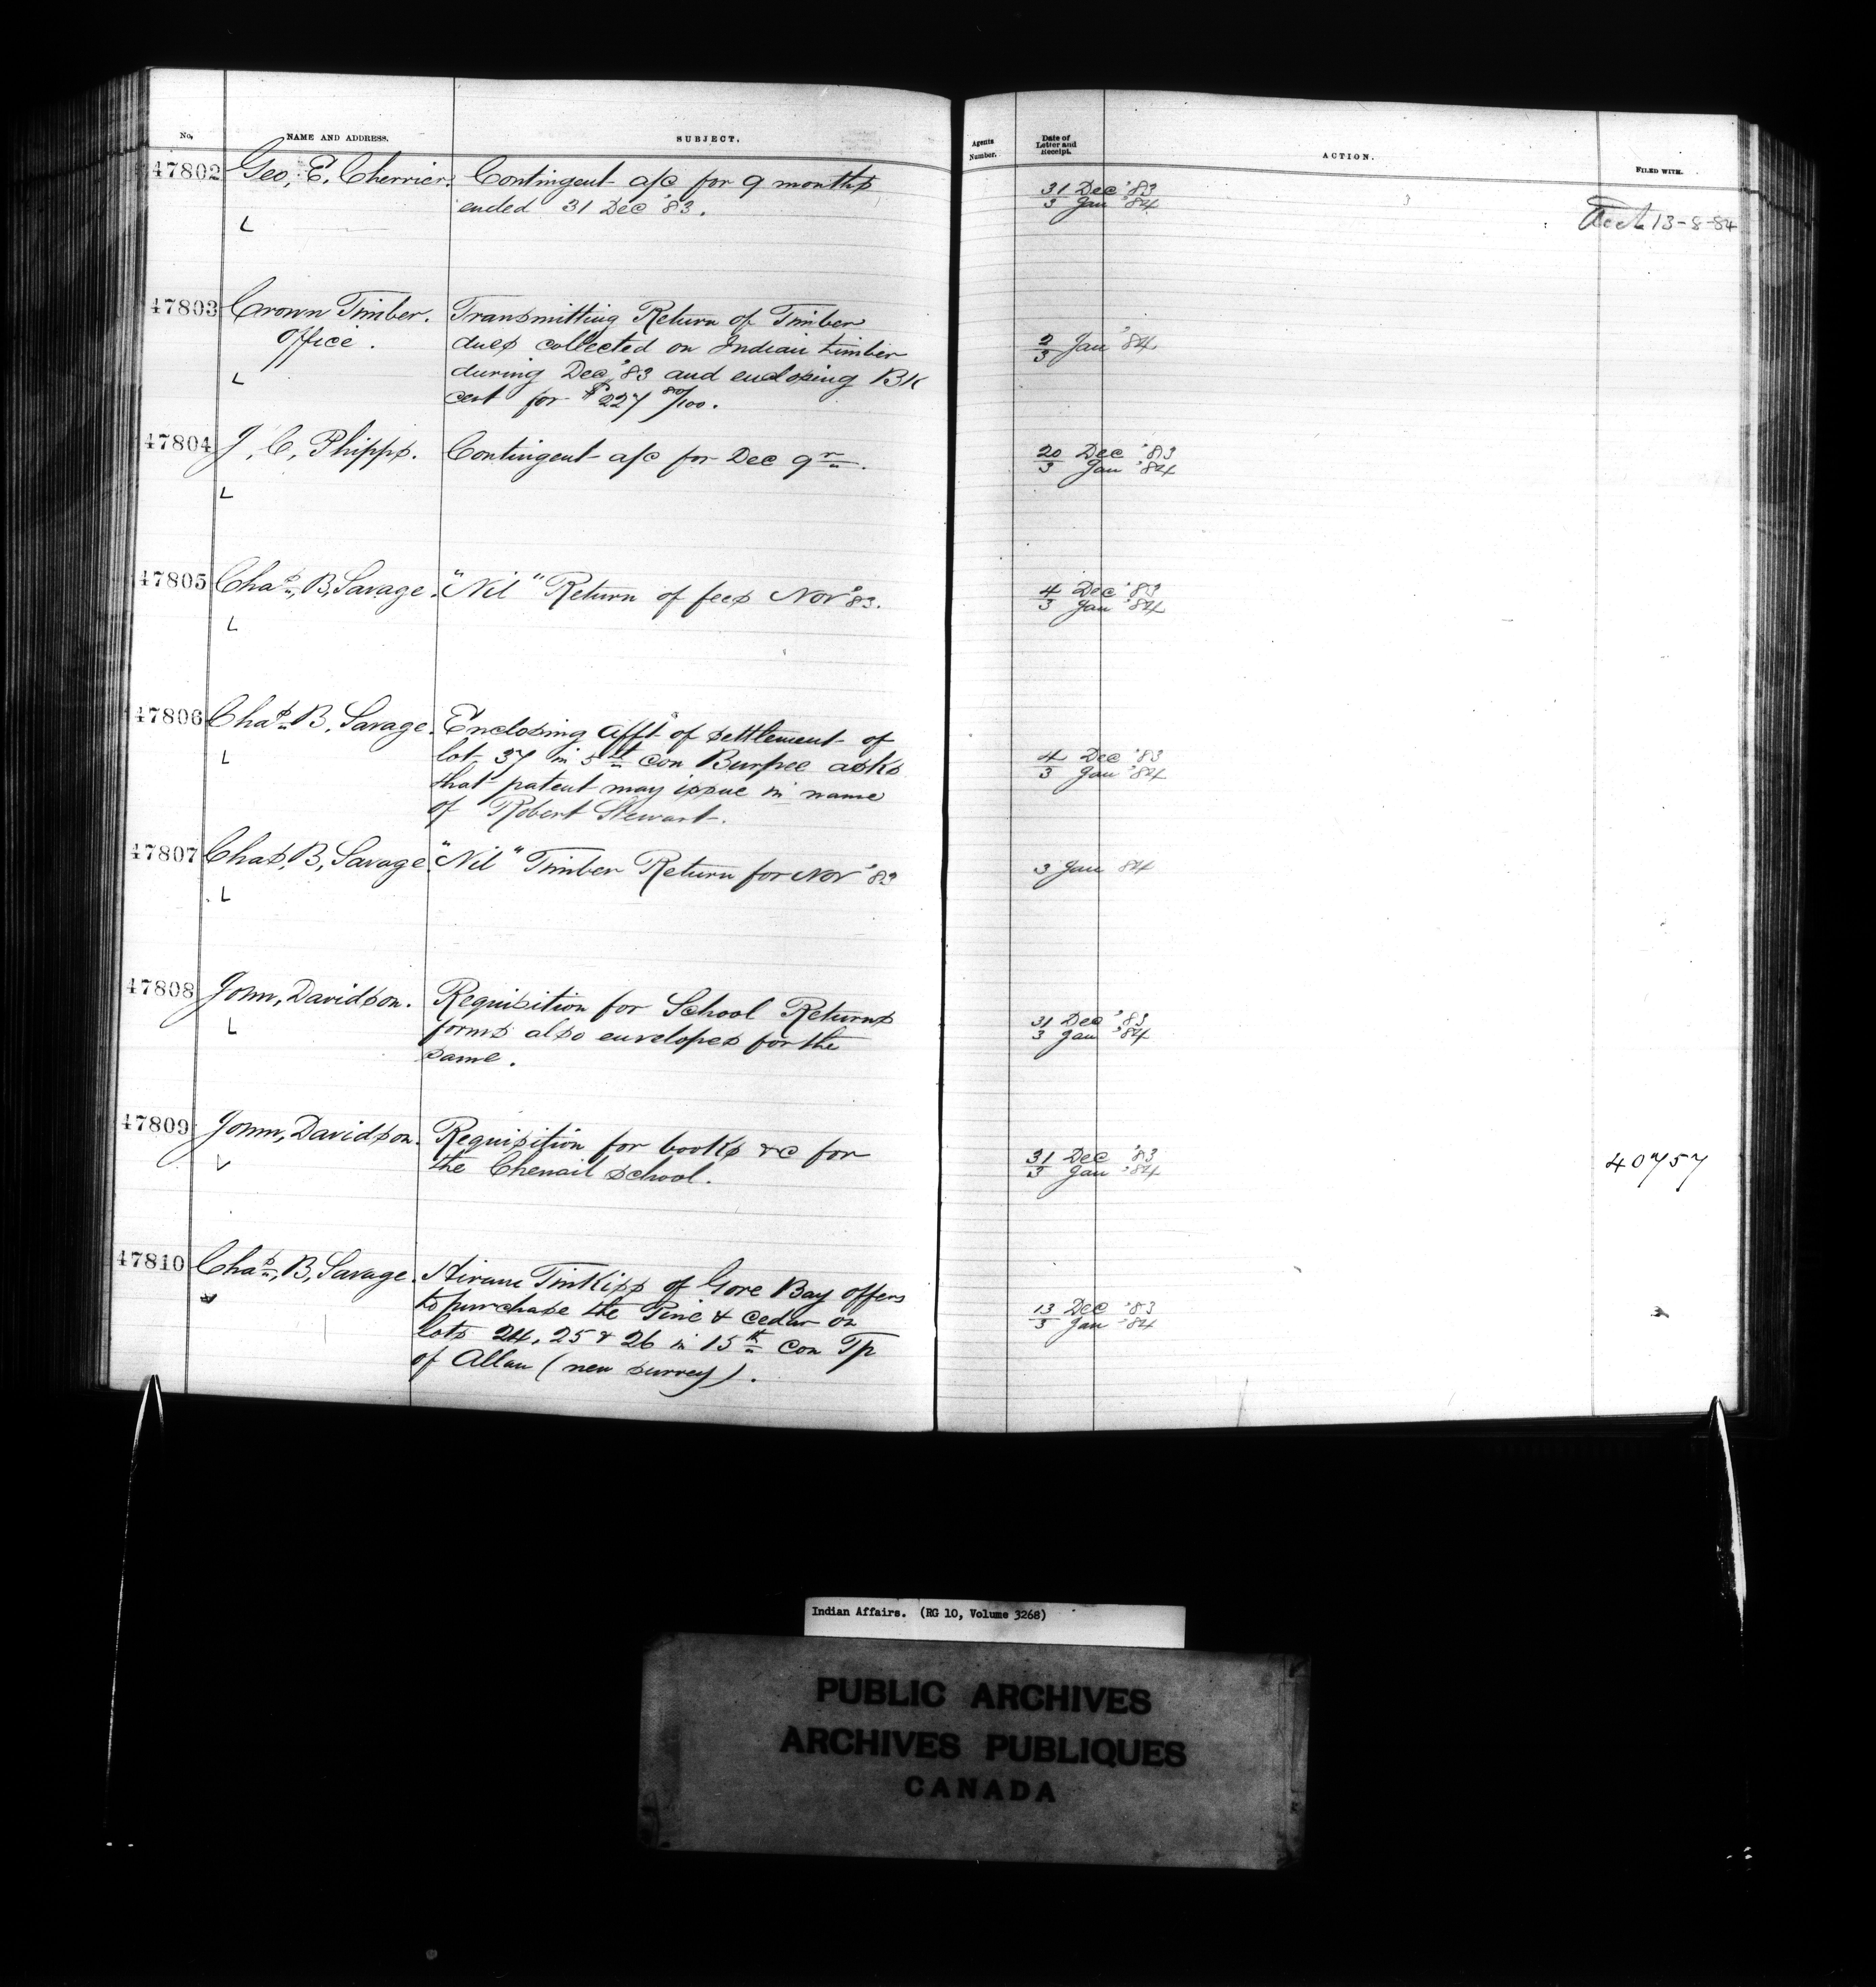 No. NAME AND ADDRESS. SUBJECT. Agents Number. Date of Letter and Receipt. ACTION. FILED WITH.
47802 Geo, E, Cherrier. Contingent a/c for 9 months 31 Dec '83
ended 31 Dec '83. 3 Jan '84
L 13-8-84
47803 Crown Timber. Transmitting Return of Timber
Office. dues collected on Indian timber 2/3 Jan '84
L during Dec '83 and enclosing BK
cert for $227 80/100.
47804 J, C, Phipps. Contingent a/c for Dec qr. 20 Dec '83
3 Jan '84
L
47805 Chas, B, Savage. "Nil" Return of fees Nov '83. 4 Dec '83
3 Jan '84
L
47806 Chas B, Savage. Enclosing afft of settlement of
L lot 37 in 5th con Burpee asks 4 Dec '83
that patent may issue in name 3 Jan '84
of Robert Stewart.
47807 Chas, B, Savage. "Nil" Timber Return for Nov '83 3 Jan 84
L
47808 John, Davidson. Requisition for School Returns
L forms also envelopes for the 31 Dec '83
same. 3 Jan '84
47809 John, Davidson. Requisition for books &c for 31 Dec '83
the Chenail school. 3 Jan '84 40757
47810 Chas, B, Savage. Hiram Tinkiss of Gore Bay offers
to purchase the Pine & Cedar on 13 Dec '83
lots 24, 25 & 26 in 15th Con Tp 3 Jan '84
of Allan (new survey).
Indian Affairs. (RG 10, Volume 3268)
PUBLIC ARCHIVES
ARCHIVES PUBLIQUES
CANADA